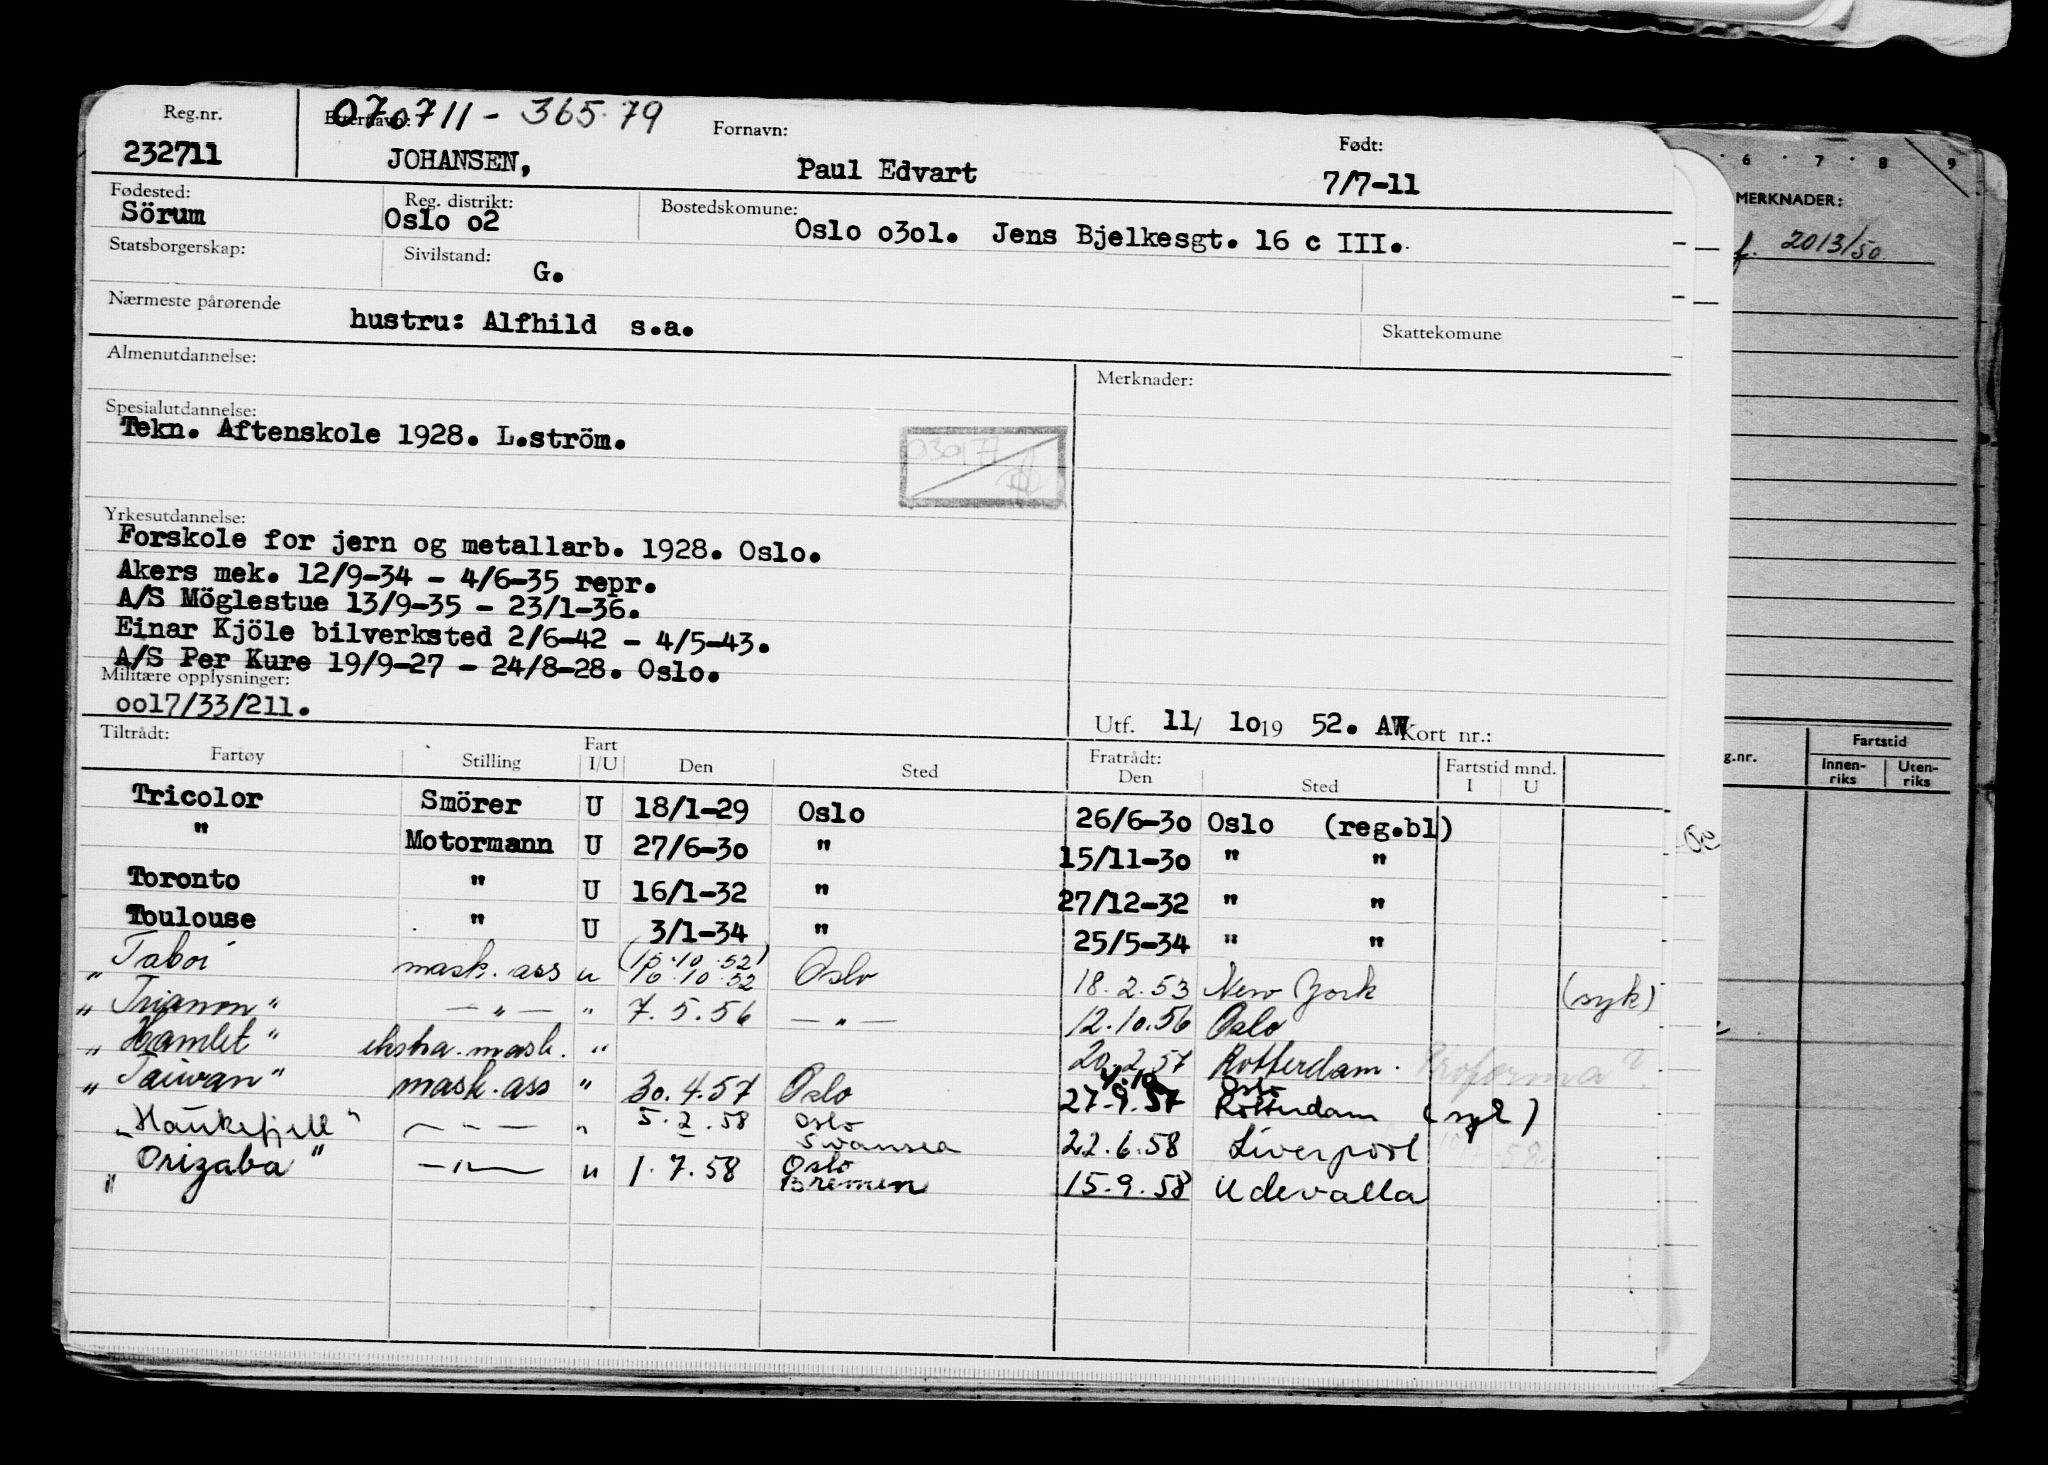 Reg.nr. Etternavn: 070711 - 365.79 Fornavn: Født:
232711 JOHANSEN, Paul Edvart 7/7-11
Fødested: Reg. distrikt: Bostedskomune:
Sörum Oslo o2 Oslo o3ol. Jens Bjelkesgt. 16 c III.
Statsborgerskap: Sivilstand: G.
Nærmeste pårørende hustru: Alfhild s.a. Skattekomune
Almenutdannelse: Merknader:
Spesialutdannelse:
Tekn. Aftenskole 1928. L.ström.
030177
Yrkesutdannelse:
Forskole for jern og metallarb. 1928. Oslo.
Akers mek. 12/9-34 - 4/6-35 repr.
A/S Möglestue 13/9-35 - 23/1-36.
Einar Kjöle bilverksted 2/6-42 - 4/5-43.
A/S Per Kure 19/9-27 - 24/8-28. Oslo.
Militære opplysninger:
ool7/33/211.
Utf. 11/ 1o 19 52. AW Kort nr.:
Tiltrådt: Fratrådt:
Fartøy Stilling Fart I/U Den Sted Den Sted Fartstid mnd. I U
Tricolor Smörer U 18/1-29 Oslo 26/6-3o Oslo (reg.bl)
" Motormann U 27/6-3o " 15/11-3o " "
Toronto " U 16/1-32 " 27/12-32 " "
Toulouse " U 3/1-34 " 25/5-34 " "
(15.10.52)
" Taboi mask. ass u 16.10.52 Oslo 18.2.53 New York (syk)
" Trianon " — " — " 7.5.56 — " — 12.10.56 Oslo
" Hamlet " ekstra. mask. " 20.2.57 Rotterdam. Proforma?
4.10 Oslo
" Taiwan " mask. ass " 30.4.57 Oslo 27.9.57 Rotterdam (syk)
" Haukefjell " — " — " 5.2.58 Oslo Swansea 22.6.58 Liverpool
" Orizaba " — " — u 1.7.58 Oslo Bremen 15.9.58 Udevalla
6 7 8 9
MERKNADER:
f. 2013/50
g.nr. Fartstid
Innenriks Utenriks